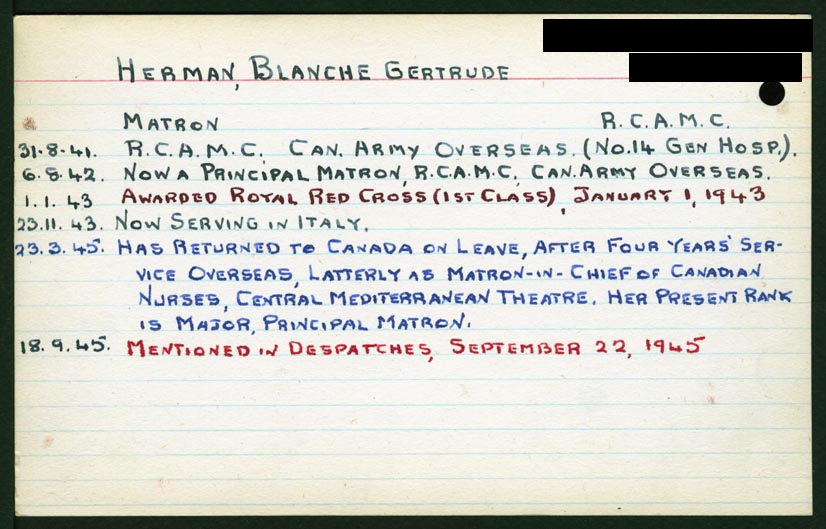 HERMAN, BLANCHE GERTRUDE
MATRON R.C.A.M.C.
31.8.41. R.C.A.M.C. CAN. ARMY OVERSEAS. (NO.14 GEN HOSP.).
6.8.42. NOW A PRINCIPAL MATRON, R.C.A.M.C. CAN. ARMY OVERSEAS.
1.1.43 AWARDED ROYAL RED CROSS (1ST CLASS), JANUARY 1, 1943
23.11.43. NOW SERVING IN ITALY.
23.3.45. HAS RETURNED TO CANADA ON LEAVE, AFTER FOUR YEARS' SER-
VICE OVERSEAS, LATTERLY AS MATRON-IN-CHIEF OF CANADIAN
NURSES, CENTRAL MEDITERRANEAN THEATRE. HER PRESENT RANK
IS MAJOR, PRINCIPAL MATRON.
18.9.45. MENTIONED IN DESPATCHES, SEPTEMBER 22, 1945